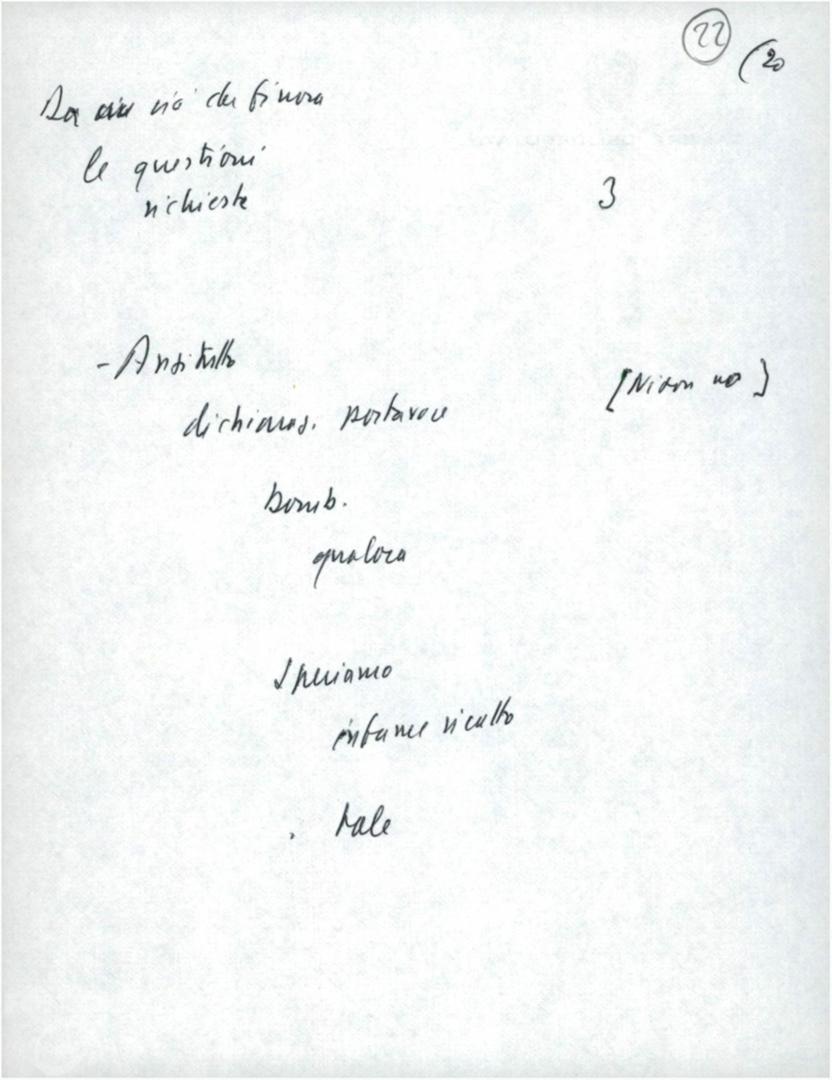 22
(20
ciò che finora
le questioni
richieste
3
- Anzitutto
[Nixon no]
dichiaraz. portavoce
bomb.
qualora
Speriamo
infame ricatto
tale